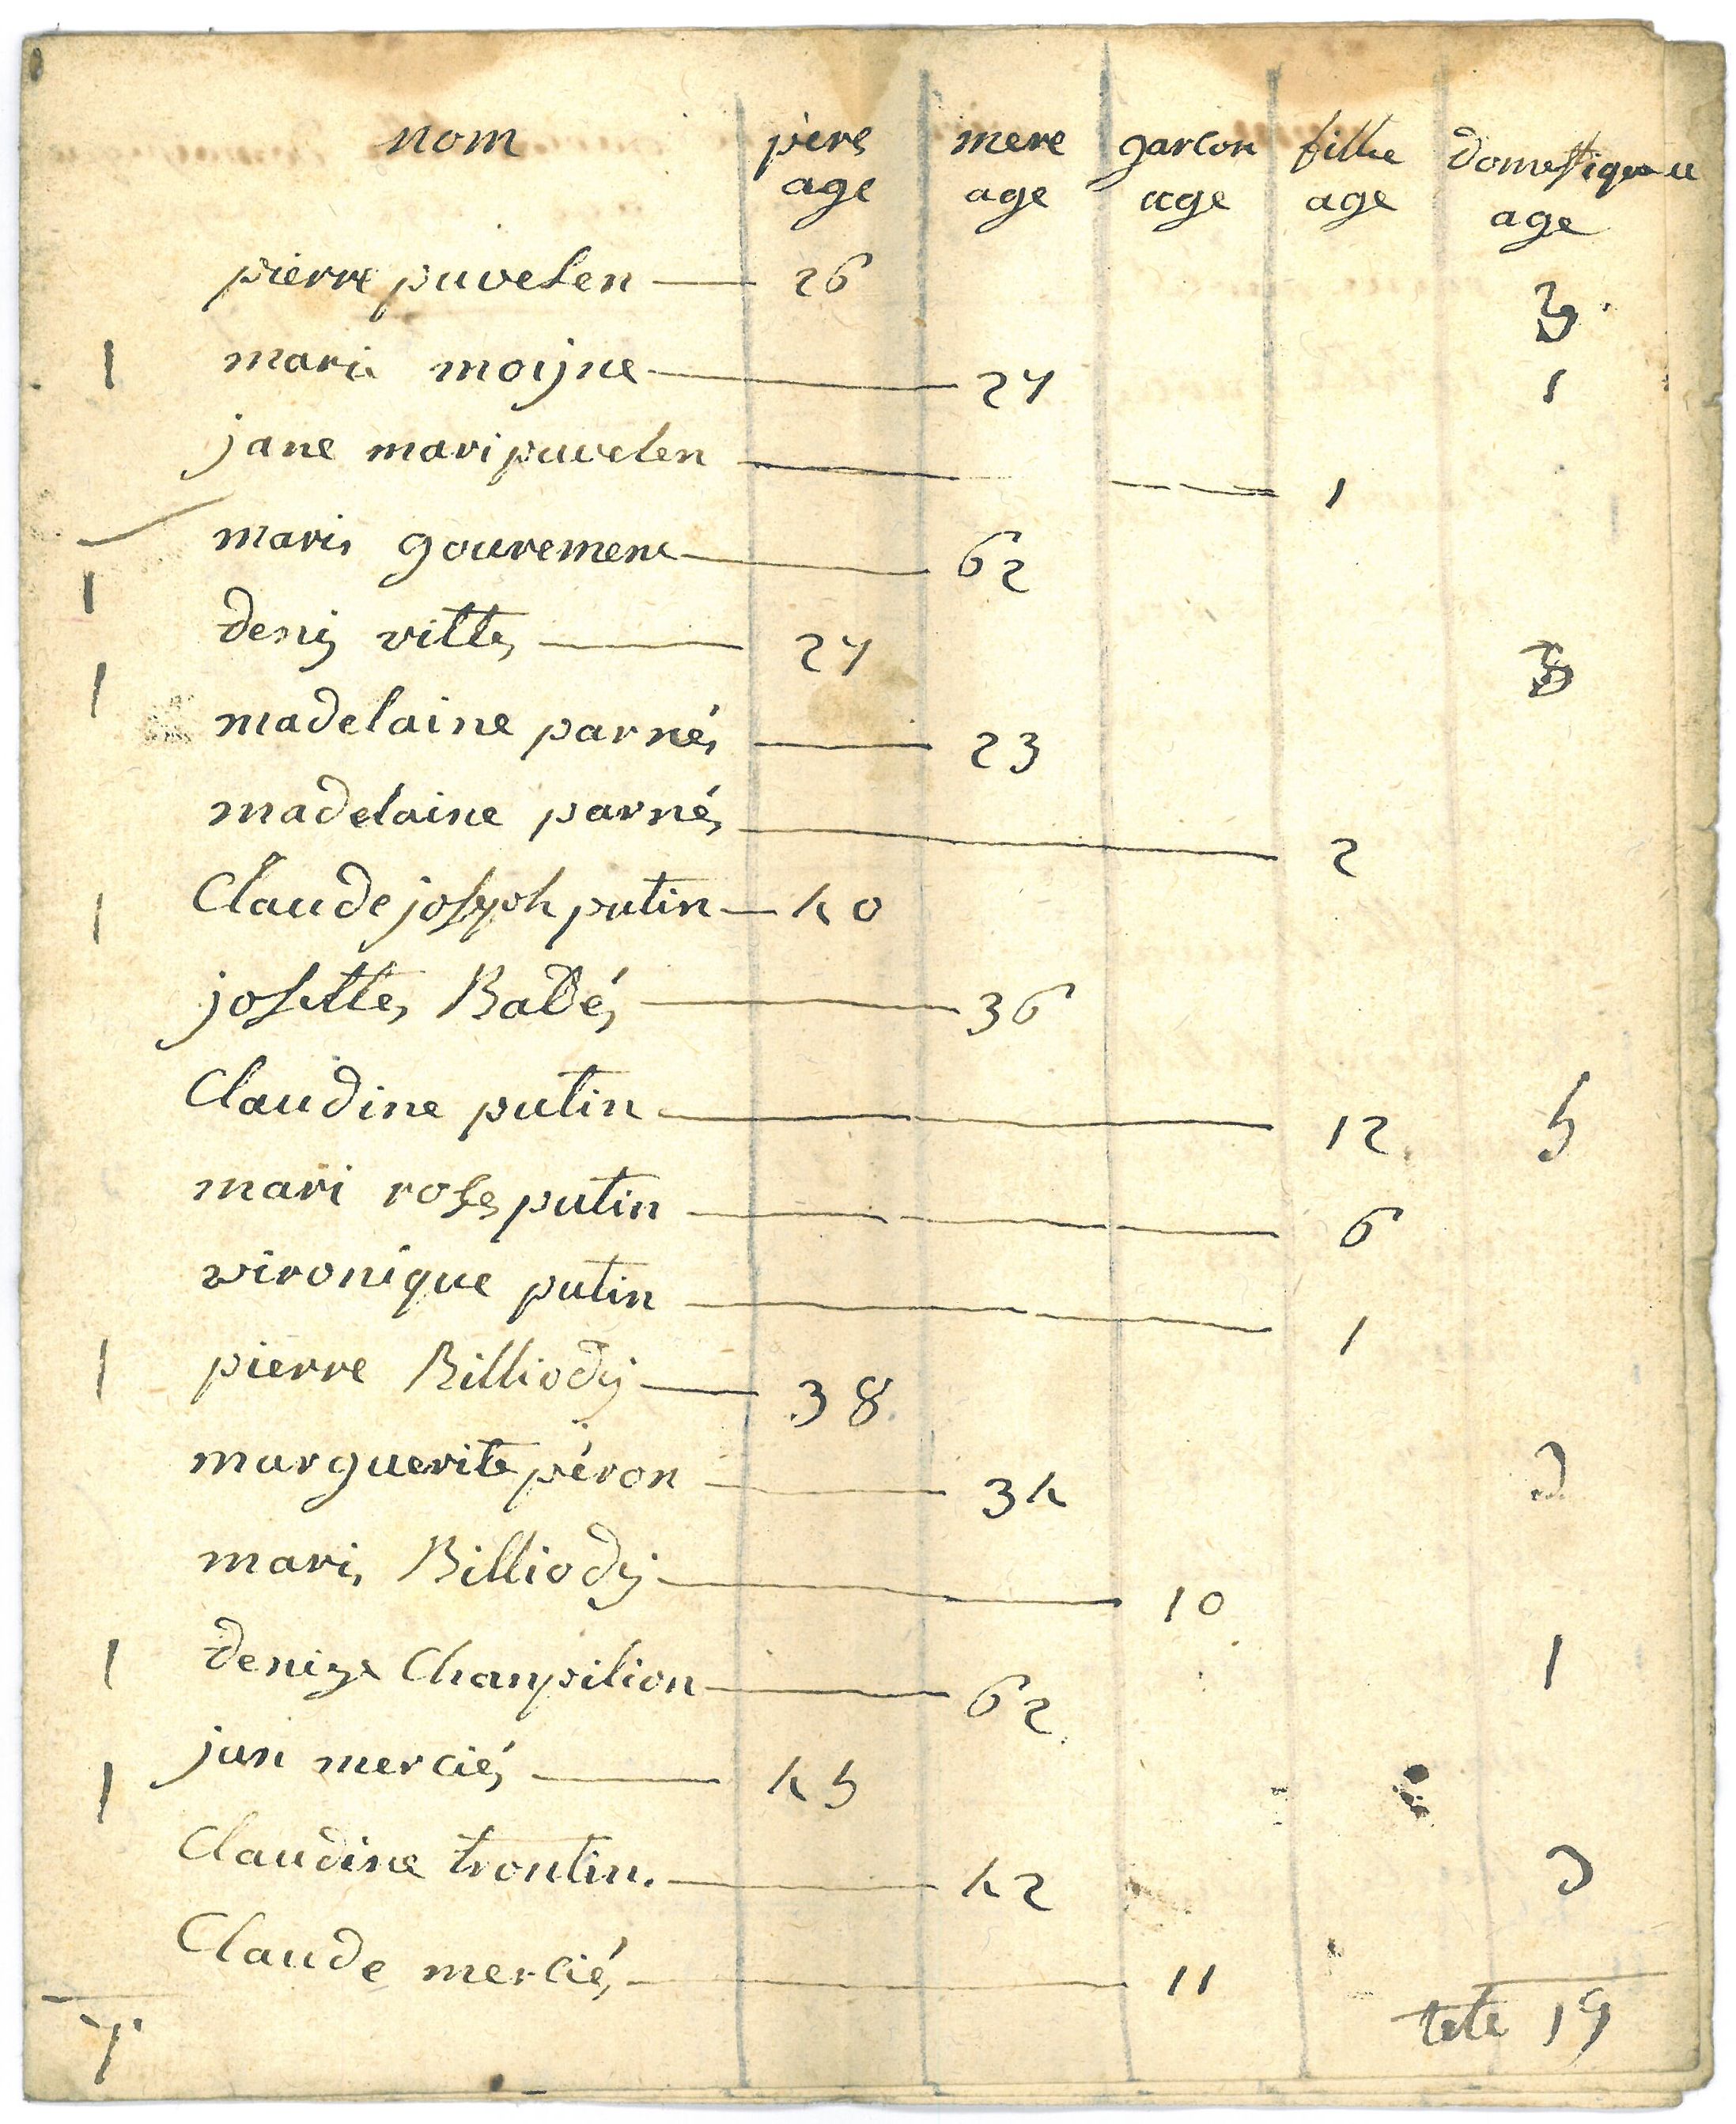 nom père mere garcon fillie domestique
age age age age age
pierre puvelen — 26 3
1 mari moijne — 27 1
jane mari puvelen — 1
mari gouremene — 62
1 denis vitte — 27 3
1 madelaine parné — 23
madelaine parné — 2
1 Claude joseph putin — 40
josette Badé — 36
Claudine putin — 12 5
mari rose putin — 6
vironique putin — 1
1 pierre Billiody — 38
marguerite péron — 34 3
mari Billiody — 10
1 denize Chanpilion — 62 1
1 jan mercié — 45
Claudine trontin. — 42 3
Claude mercié — 11
7 tete 19